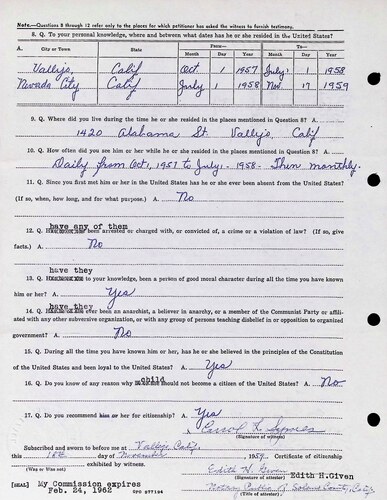 Note.—Questions 8 through 12 refer only to the places for which petitioner has asked the witness to furnish testimony.
8. Q. To your personal knowledge, where and between what dates has he or she resided in the United States?
A. City or Town State From— To—
Month Day Year Month Day Year
Vallejo, Calif Oct 1 1957 July 1 1958
Nevada City Calif July 1 1958 Nov. 17 1959
9. Q. Where did you live during the time he or she resided in the places mentioned in Question 8? A.
1420 Alabama St. Vallejo Calif
10. Q. How often did you see him or her while he or she resided in the places mentioned in Question 8? A.
Daily from Oct, 1957 to July 1 - 1958 - Then monthly.
11. Q. Since you first met him or her in the United States has he or she ever been absent from the United States?
(If so, when, how long, and for what purpose.) A. No
have any of them
12. Q. been arrested or charged with, or convicted of, a crime or a violation of law? (If so, give
facts.) A. No
have they
13. Q. to your knowledge, been a person of good moral character during all the time you have known
him or her? A. Yes
have they
14. Q. ever been an anarchist, a believer in anarchy, or a member of the Communist Party or affili-
ated with any other subversive organization, or with any group of persons teaching disbelief in or opposition to organized
government? A. No
15. Q. During all the time you have known him or her, has he or she believed in the principles of the Constitution
of the United States and been loyal to the United States? A. Yes
child
16. Q. Do you know of any reason why should not become a citizen of the United States? A. No
17. Q. Do you recommend her for citizenship? A. Yes
(Signature of witness)
Subscribed and sworn to before me at Vallejo, Calif.
this 18th day of November, 1959. Certificate of citizenship
exhibited by witness.
(Was or Was not)
Edith H. Given Edith H. Given
(Signature of attestor)
[SEAL] My Commission expires
Feb. 24, 1962
GPO 877198
Notary Public Solano County, Calif